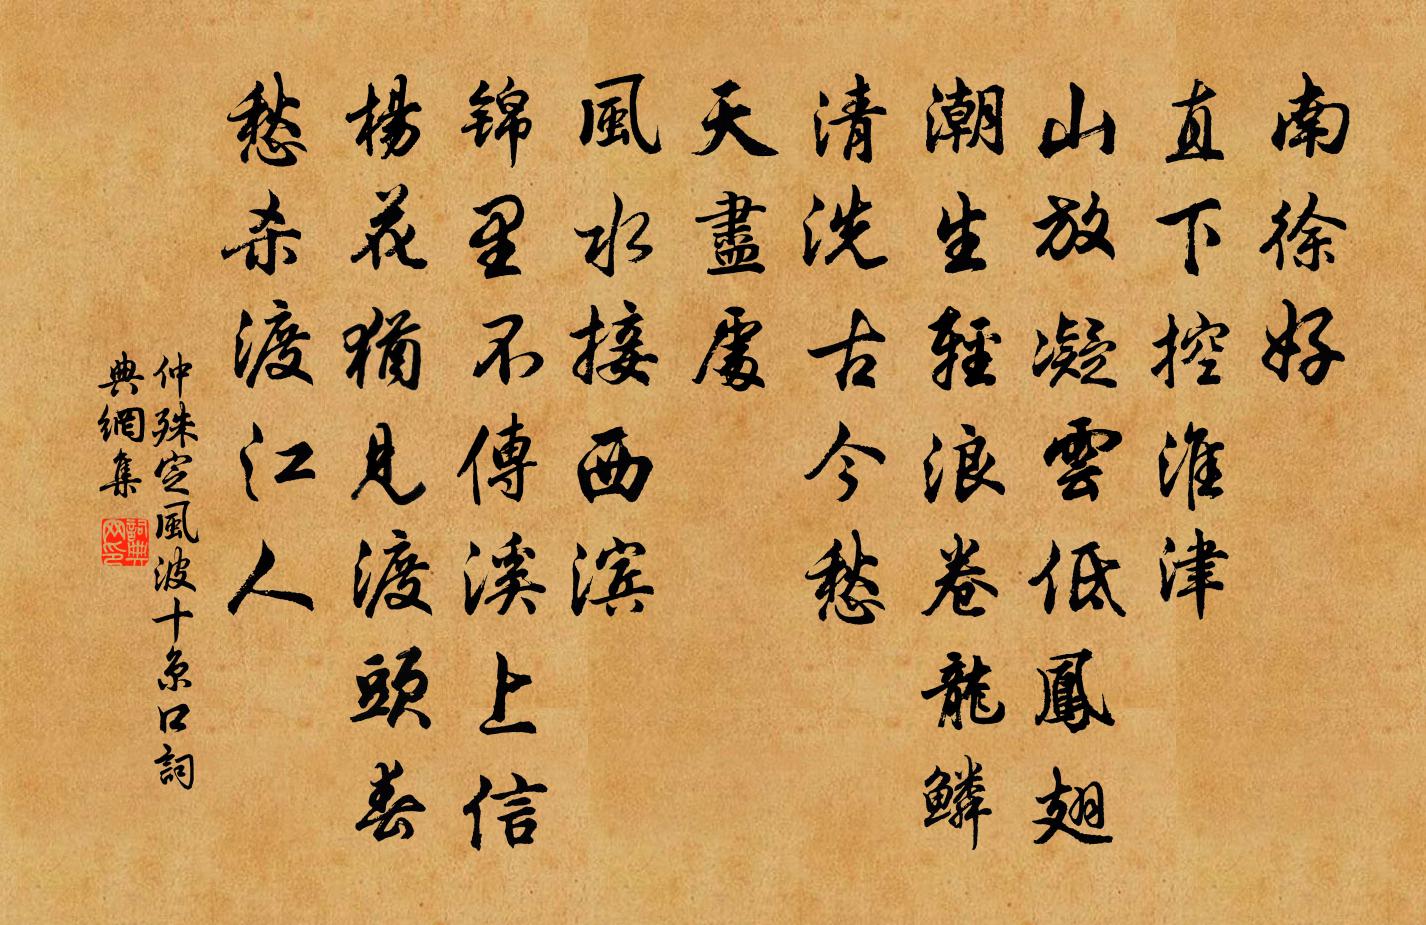 南徐好
直下控淮津
山放凝雲低鳳翅
潮生輕浪卷龍鱗
清洗古今愁
天盡處
風水接西滨
锦里不傳溪上信
楊花猶見渡頭春
愁杀渡江人
仲殊定風波十京口詞
典網集
詞典网印